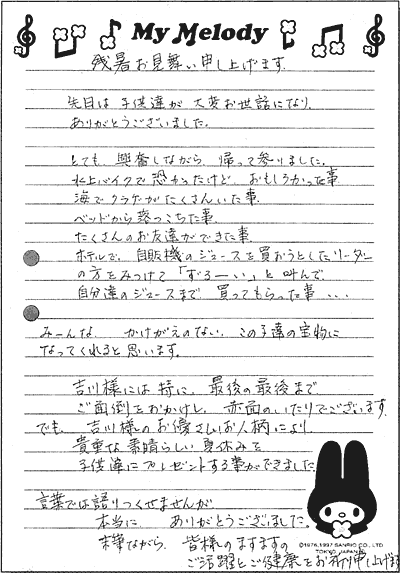 My Melody
残暑お見舞い申し上げます.
先日は子供達が大変お世話になり、
ありがとうございました。
とても、興奮しながら、帰って参りました。
水上バイクで恐かったけど、おもしろかった事
海でクラゲがたくさんいた事.
ベッドから落っこちた事.
たくさんのお友達ができた事
ホテルで、自販機のジュースを買おうとしたリーダー
の方をみつけて「ずるーい」と叫んで、
自分達のジュースまで、買ってもらった事...
みーんな、かけがえのない、この子達の宝物に
なってくれると思います。
吉川様には特に、最後の最後まで
ご面倒をおかけし、赤面のいたりでございます.
でも、吉川様のお優さしいお人柄により、
貴重な素晴らしい夏休みを
子供達にプレゼントする事ができました。
言葉では語りつくせませんが
本当に、ありがとうございました。
末筆ながら、皆様のますますの
ご活躍とご健康をお祈り申し上げます
©1976,1997 SANRIO CO.,LTD.
TOKYO, JAPAN